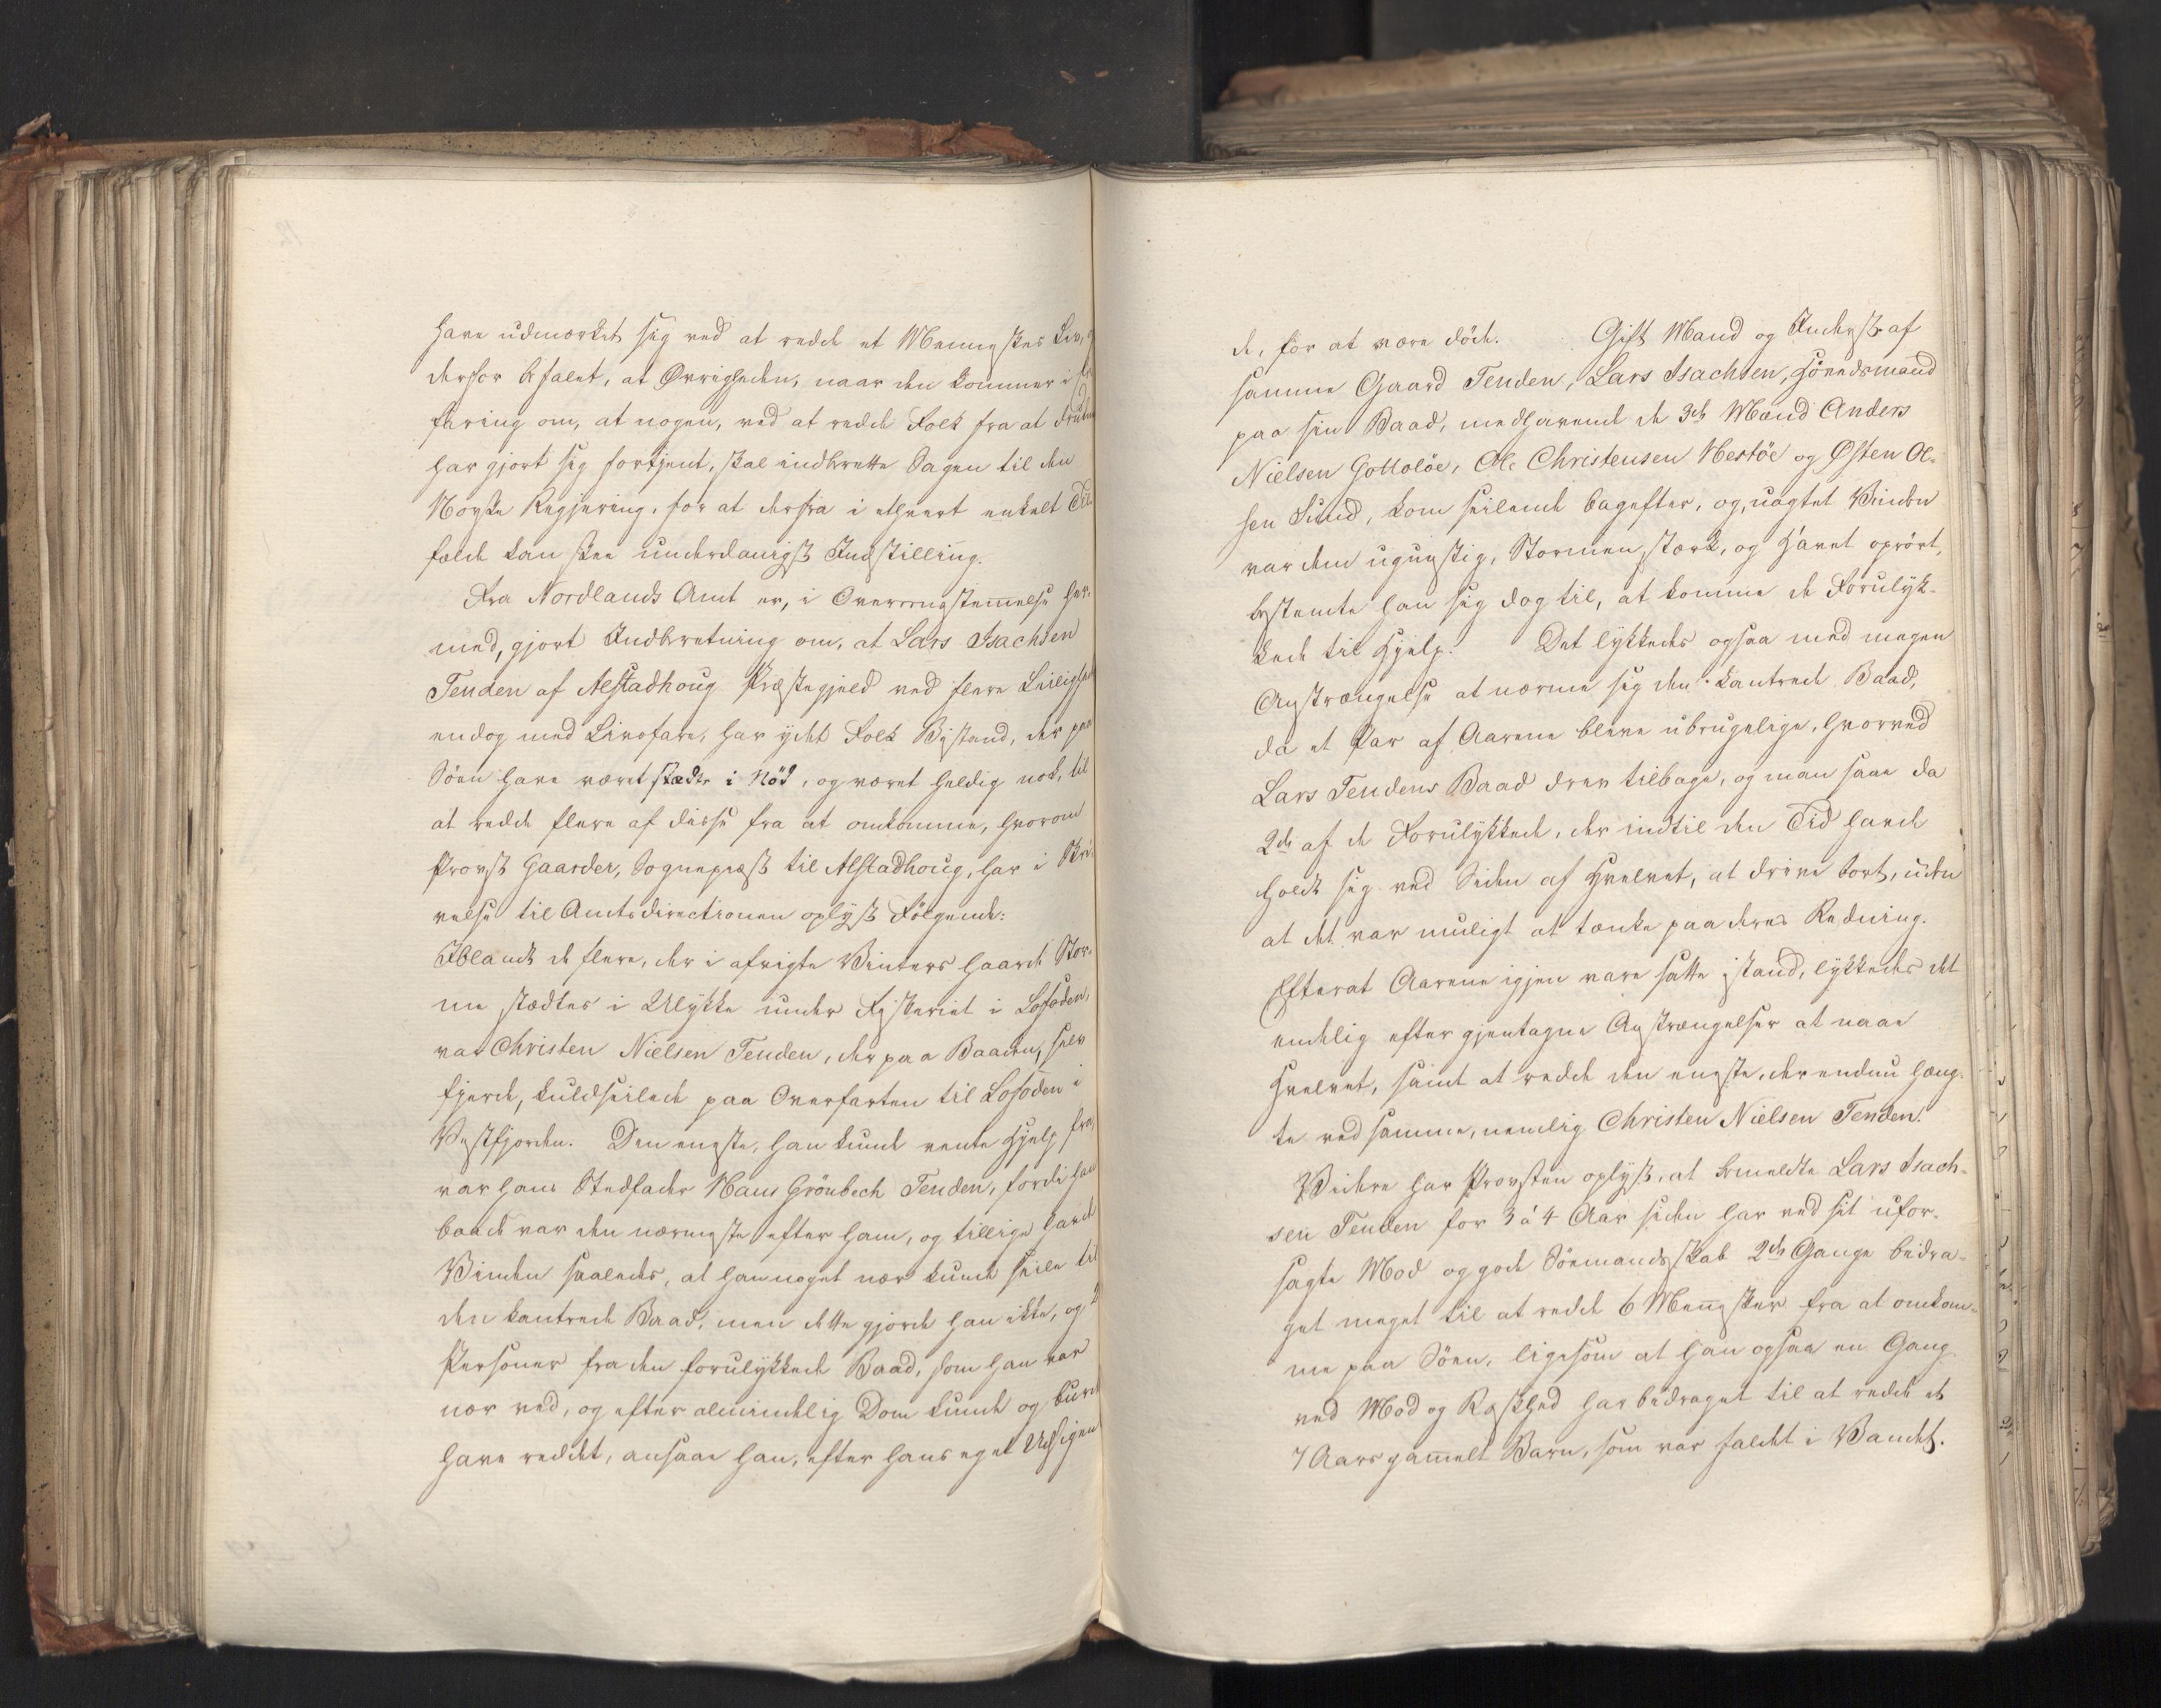 have udmærket sig ved at redde et Menneskes Liv,
derfor befalet, at Øvrigheden, naar den kommer i Er-
faring om, at nogen, ved at redde Folk fra at drukne
har gjort sig fortjent, skal indberette Sagen til den
Norske Regjering, for at derfra i ethvert enkelt Til-
fælde kan skee underdanigst Indstilling.
Fra Nordlands Amt er, i Overeensstemmelse her-
med, gjort Indberetning om, at Lars Isachsen
Tenden af Alstadhoug Præstegjeld ved flere Leiligheder
endog med Livsfare, har ydet Folk Bistand, der paa
Söen have været stædte i Nöd, og været heldig nok, til
at redde flere af disse fra at omkomme, hvorom
Provst Gaarder, Sognepræst til Alstadhoug, har i Skri-
velse til Amtsdirectionen oplyst Fölgende:
Iblandt de flere, der i afvigte Vinters haarde Stor-
me stædtes i Ulykke under Fiskeriet i Lofoden,
var Christen Nielsen Tenden, der paa Baaden, selv
fjerde, kuldseilede paa Overfarten til Lofoden i
Vestfjorden. Den eneste, han kunde vente Hjelp fra,
var hans Stedfader Hans Grönbech Tenden, fordi han
baade var den nærmeste efter ham, og tillige havde
Vinden saaledes, at han noget nær kunde seile til
den kantrede Baad, men dette gjorde han ikke, og 2
Personer fra den forulykkede Baad, som han var
nær ved, og efter almindelig Dom kunde og burde
have reddet, ansaae han, efter hans eget Udsigende
de, for at være döde. Gift Mand og Inderst af
samme Gaard Tenden, Lars Isachsen, Hövedsmand
paa sin Baad, medhavende de 3de Mænd Anders
Nielsen Gottolöe, Ole Christensen Hestöe og Østen Ol-
sen Sund, kom seilende bagefter, og, uagtet Vinden
var dem ugunstig, Stormen stærk, og Havet oprört,
bestemte han sig dog til, at komme de Forulyk-
kede til Hjelp. Det lykkedes ogsaa med megen
Anstrængelse at nærme sig den kantrede Baad,
da et Par af Aarene bleve ubrugelige, hvorved
Lars Tendens Baad drev tilbage, og man saae da
2de af de Forulykkede, der indtil den Tid havde
holdt sig ved Siden af Hvelvet, at drive bort, uden
at det var muligt at tænke paa deres Redning.
Efterat Aarene igjen vare satte istand, lykkedes det
endelig efter gjentagne Anstrængelser at naae
Hvelvet, samt at redde den eneste, der endnu hæng-
te ved samme, nemlig Christen Nielsen Tenden.
Videre har Provsten oplyst, at bemeldte Lars Isach-
sen Tenden for 3 á 4 Aar siden har ved sit ufor-
sagte Mod og gode Sömandsskab 2de Gange bidra-
get meget til at redde 6 Mennesker fra at omkom-
me paa Söen, ligesom at han ogsaa en Gang
ved Mod og Raskhed har bidraget til at redde et
7 Aars gammelt Barn, som var faldet i Vandet.